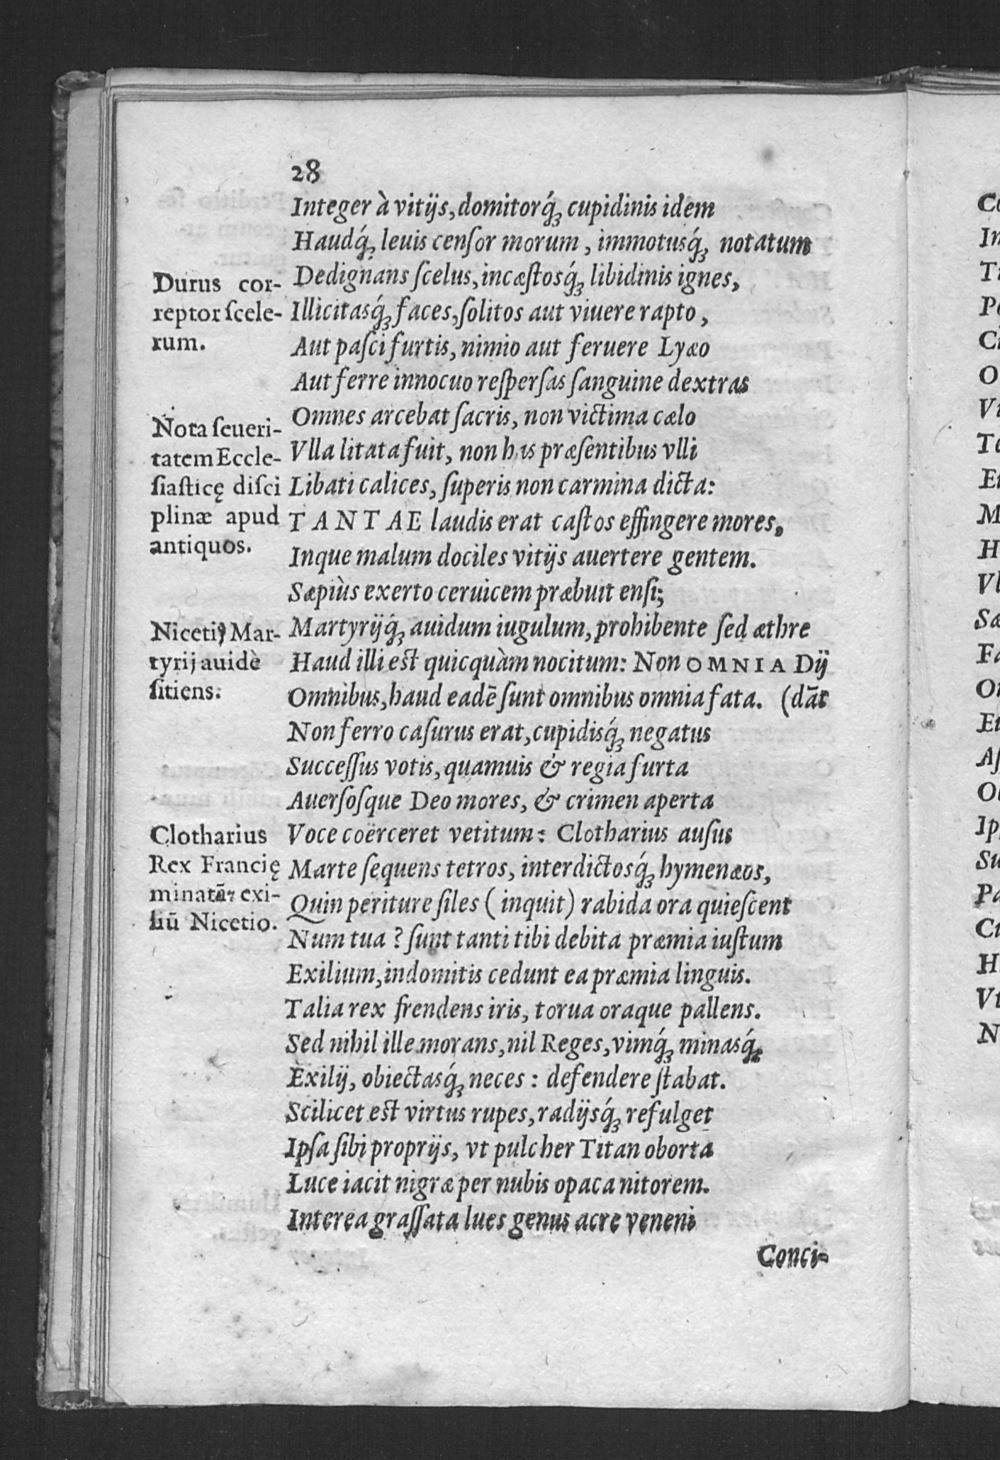 28
Integer à vitijs, domitorq́ꝫ cupidinis idem
Haudq́ꝫ leuis cenſor morum, immotusq́ꝫ notatum
Dedignans ſcelus, incæſtosq́ꝫ libidinis ignes,
Illicitasq́ꝫ faces, ſolitos aut viuere rapto,
Aut paſci furtis, nimio aut feruere Lyæo
Aut ferre innocuo reſperſas ſanguine dextras
Omnes arcebat ſacris, non victima cælo
Vlla litata fuit, non his præſentibus vlli
Libati calices, ſuperis non carmina dicta:
TANTAE laudis erat caſtos effingere mores,
Inque malum dociles vitijs auertere gentem.
Sæpiùs exerto ceruicem præbuit enſi;
Martyrijq́ꝫ auidum iugulum, prohibente ſed æthre
Haud illi eſt quicquàm nocitum: Non OMNIA Dij
Omnibus, haud eadē ſunt omnibus omnia fata. (dāt
Non ferro caſurus erat, cupidisq́ꝫ negatus
Succeſſus votis, quamuis & regia furta
Auerſoſque Deo mores, & crimen aperta
Voce coërceret vetitum: Clotharius auſus
Marte ſequens tetros, interdictosq́ꝫ hymenæos,
Quin periture ſiles (inquit) rabida ora quieſcent
Num tua? ſunt tanti tibi debita præmia iuſtum
Exilium, indomitis cedunt ea præmia linguis.
Talia rex frendens iris, torua oraque pallens.
Sed nihil ille morans, nil Reges, vimq́ꝫ minasq́ꝫ
Exilij, obiectasq́ꝫ neces: defendere ſtabat.
Scilicet eſt virtus rupes, radijsq́ꝫ refulget
Ipſa ſibi proprijs, vt pulcher Titan oborta
Luce iacit nigræ per nubis opaca nitorem.
Interea graſſata lues genus acre veneni
Conci-
Durus cor-
reptor ſcele-
rum.
Nota ſeueri-
tatem Eccle-
ſiaſticę diſci
plinæ apud
antiquos.
Nicetiꝰ Mar-
tyrij auidè
ſitiens.
Clotharius
Rex Francię
minatur exi-
liū Nicetio.
Co
In
Ti
Pe
Ci
O
Vi
Te
Et
M
H
Vl
Sæ
Fa
Oi
Et
Aſ
Ob
Ip
Su
Pa
Ci
H
Vt
N